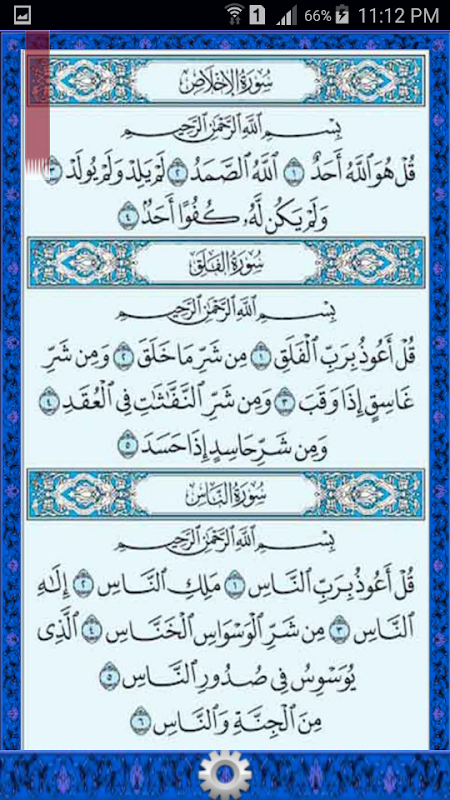 1 66% 11:12 PM
سُورَةُ الإِخْلَاصِ
بِسْمِ اللَّهِ الرَّحْمَٰنِ الرَّحِيمِ
قُلْ هُوَ ٱللَّهُ أَحَدٌ ١ ٱللَّهُ ٱلصَّمَدُ ٢ لَمْ يَلِدْ وَلَمْ يُولَدْ ٣
وَلَمْ يَكُن لَّهُۥ كُفُوًا أَحَدٌۢ ٤
سُورَةُ الفَلَقِ
بِسْمِ اللَّهِ الرَّحْمَٰنِ الرَّحِيمِ
قُلْ أَعُوذُ بِرَبِّ ٱلْفَلَقِ ١ مِن شَرِّ مَا خَلَقَ ٢ وَمِن شَرِّ
غَاسِقٍ إِذَا وَقَبَ ٣ وَمِن شَرِّ ٱلنَّفَّٰثَٰتِ فِى ٱلْعُقَدِ ٤
وَمِن شَرِّ حَاسِدٍ إِذَا حَسَدَ ٥
سُورَةُ النَّاسِ
بِسْمِ اللَّهِ الرَّحْمَٰنِ الرَّحِيمِ
قُلْ أَعُوذُ بِرَبِّ ٱلنَّاسِ ١ مَلِكِ ٱلنَّاسِ ٢ إِلَٰهِ
ٱلنَّاسِ ٣ مِن شَرِّ ٱلْوَسْوَاسِ ٱلْخَنَّاسِ ٤ ٱلَّذِى
يُوَسْوِسُ فِى صُدُورِ ٱلنَّاسِ ٥
مِنَ ٱلْجِنَّةِ وَٱلنَّاسِ ٦